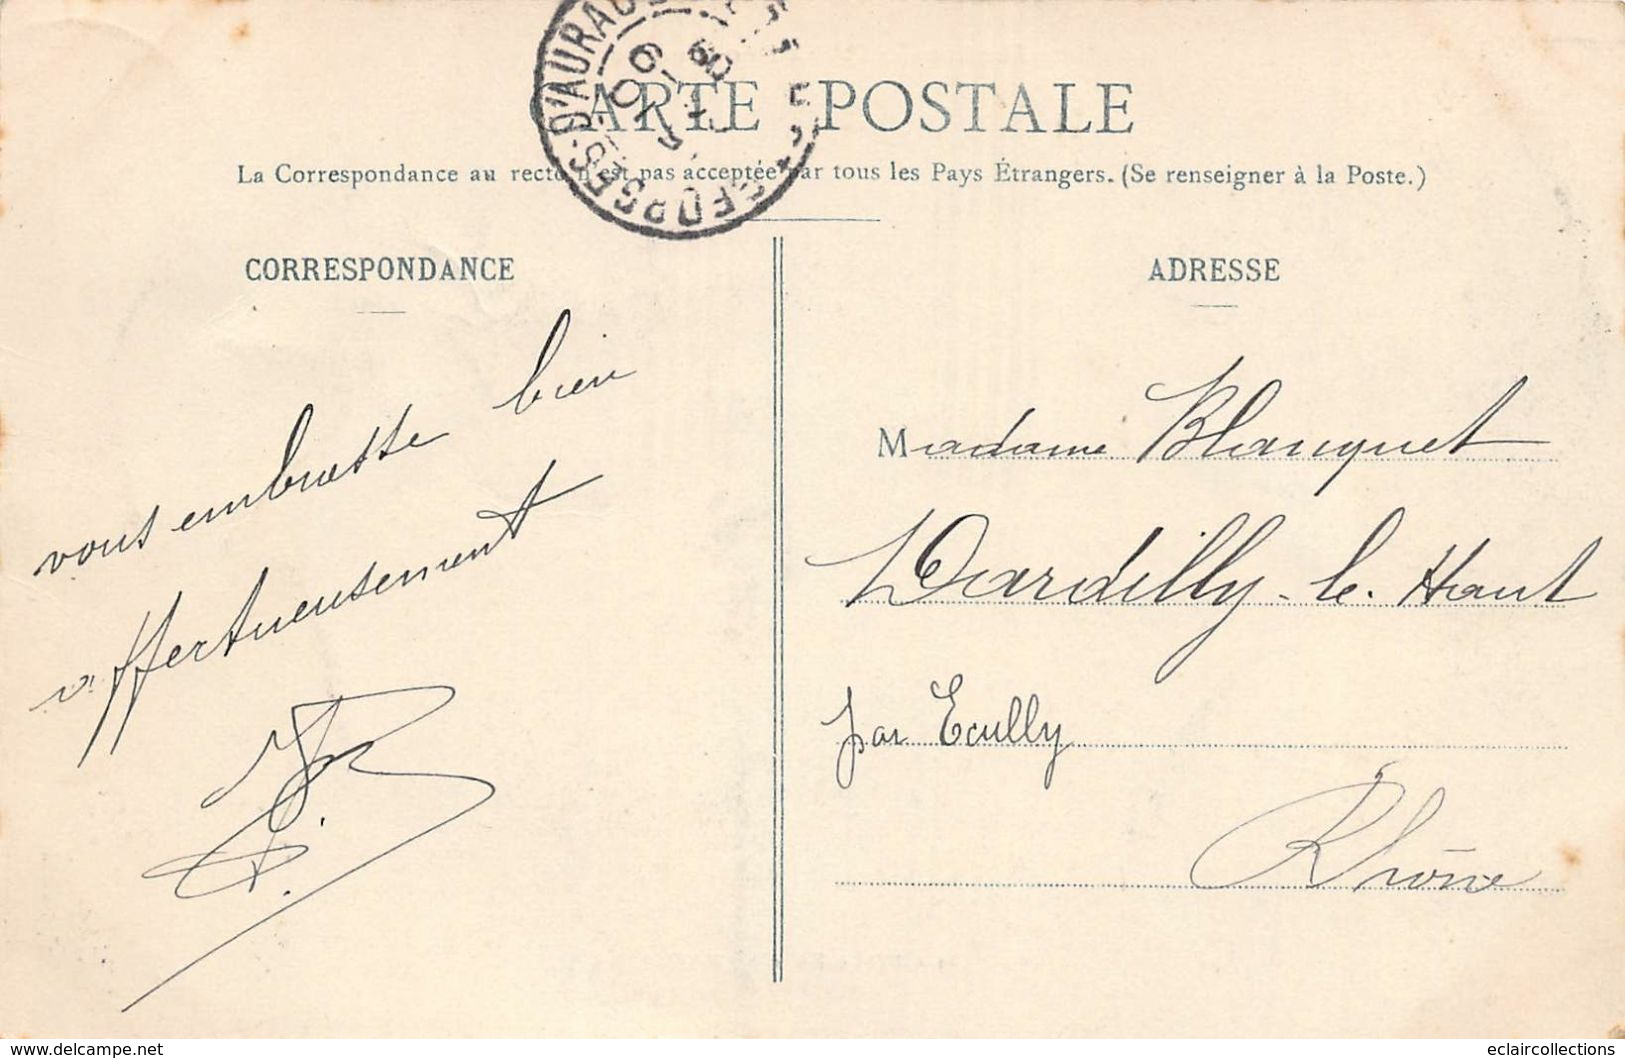 CARTE POSTALE
La Correspondance au recto n'est pas acceptée par tous les Pays Étrangers. (Se renseigner à la Poste.)
GEORGES-D'AURAC
CORRESPONDANCE
vous embrasse bien
affectueusement
ADRESSE
Madame Blanquet
Dardilly-le-Haut
par Ecully
Rhône
www.delcampe.net
eclaircollections